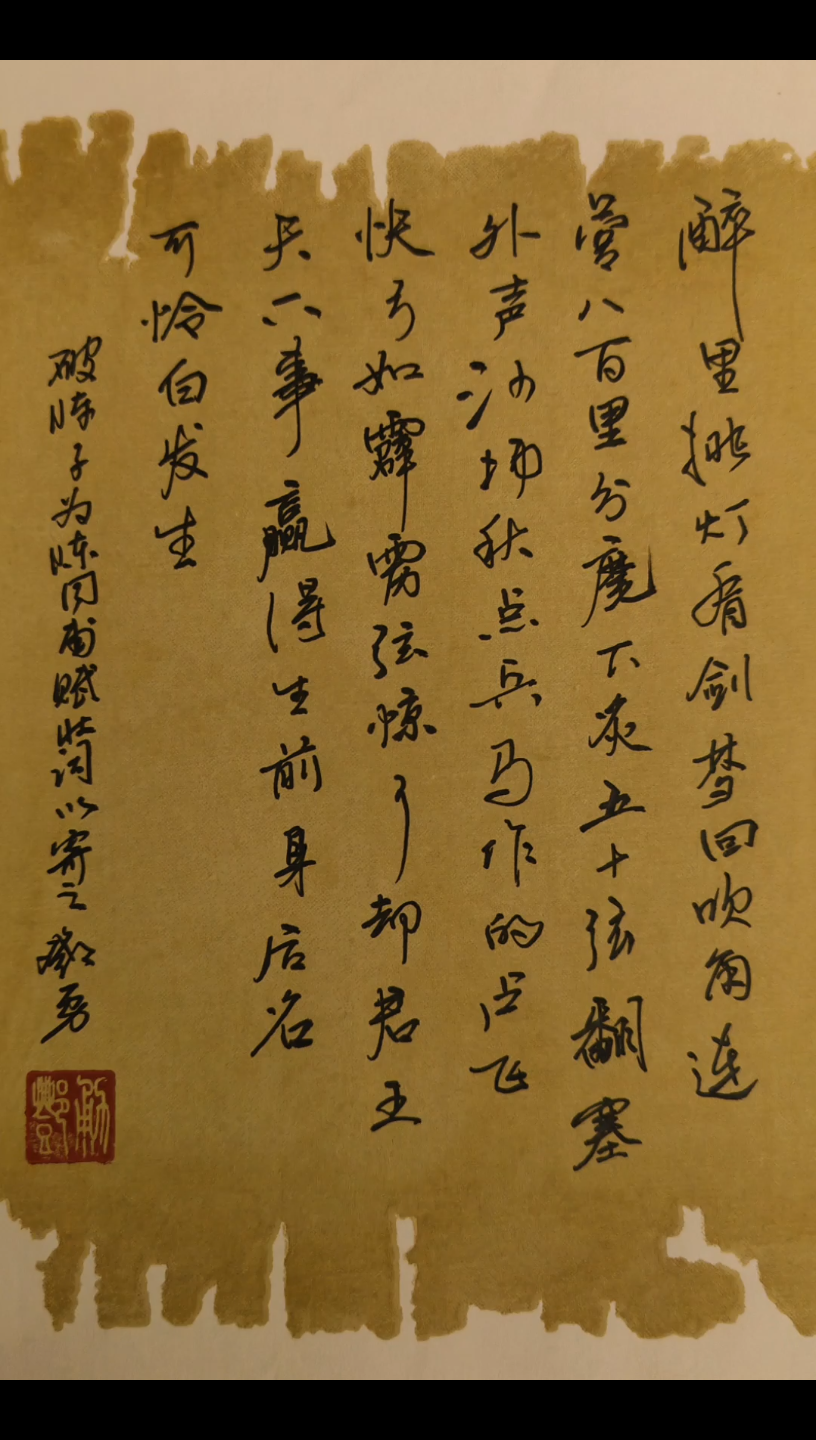 醉里挑灯看剑梦回吹角连
营八百里分麾下炙五十弦翻塞
外声沙场秋点兵马作的卢飞
快弓如霹雳弦惊了却君王
天下事赢得生前身后名
可怜白发生
破陈子为陈同甫赋壮词以寄之 邓勇